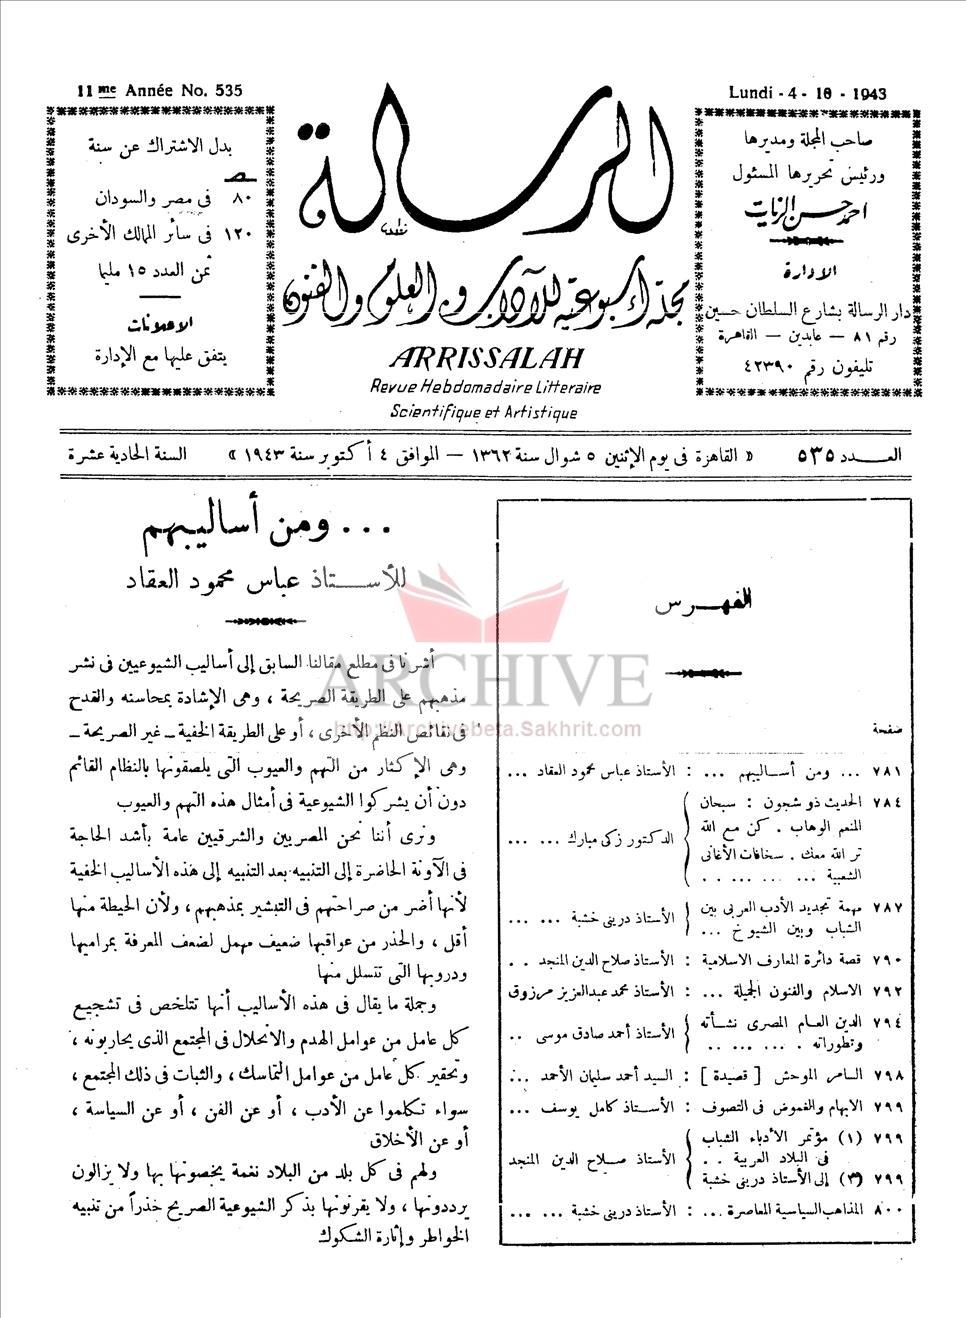 11me Année No. 535
Lundi - 4 - 10 - 1943
صاحب المجلة ومديرها
ورئيس تحريرها المسئول
احمد حسن الزيات
الادارة
دار الرسالة بشارع السلطان حسين
رقم ٨١ — عابدين — القاهرة
تليفون رقم ٤٢٣٩٠
الرسالة
مجلة أسبوعية للآداب والعلوم والفنون
ARRISSALAH
Revue Hebdomadaire Litteraire
Scientifique et Artistique
بدل الاشتراك عن سنة
٨٠ فى مصر والسودان
١٢٠ فى سائر الممالك الأخرى
ثمن العدد ١٥ مليما
الاعلانات
يتفق عليها مع الإدارة
العـــدد ٥٣٥ « القاهرة فى يوم الإثنين ٥ شوال سنة ١٣٦٢ — الموافق ٤ أكتوبر سنة ١٩٤٣ » السنة الحادية عشرة
الفهرس
صفحة
٧٨١ ... ومن أساليبهم ... : الأستاذ عباس محمود العقاد ...
٧٨٤ الحديث ذو شجون : سبحان
المنعم الوهاب . كن مع الله
تر الله معك . سخافات الأغانى
الشعبية ... ... ... . .
الدكتور زكى مبارك ... ...
٧٨٧ مهمة تجديد الأدب العربى بين
الشباب وبين الشيوخ ...
الأستاذ درينى خشبة ... ...
٧٩٠ قصة دائرة المعارف الاسلامية : الأستاذ صلاح الدين المنجد . .
٧٩٢ الاسلام والفنون الجميلة ... : الأستاذ محمد عبدالعزيز مرزوق
٧٩٤ الدين العام المصرى نشأته
وتطوراته . ... ... . .
الأستاذ أحمد صادق موسى ..
٧٩٨ السامر الموحش [ قصيدة ] : السيد أحمد سليمان الأحمد ...
٧٩٩ الابهام والغموض فى التصوف : الأستاذ كامل يوسف ... ...
٧٩٩ (١) مؤتمر الأدباء الشباب
فى البلاد العربية . .
٧٩٩ (٣) إلى الأستاذ درينى خشبة
الأستاذ صلاح الدين المنجد
٨٠٠ المذاهب السياسية المعاصرة ... : الأستاذ درينى خشبة ... ...
... ومن أساليبهم
للأستاذ عباس محمود العقاد
أشرنا فى مطلع مقالنا السابق إلى أساليب الشيوعيين فى نشر
مذهبهم على الطريقة الصريحة ، وهى الإشادة بمحاسنه والقدح
فى نقائص النظم الأخرى ، أو على الطريقة الخفية ــ غير الصريحة ــ
وهى الإكثار من التهم والعيوب التى يلصقونها بالنظام القائم
دون أن يشركوا الشيوعية فى أمثال هذه التهم والعيوب
ونرى أننا نحن المصريين والشرقيين عامة بأشد الحاجة
فى الآونة الحاضرة إلى التنبيه بعد التنبيه إلى هذه الأساليب الخفية
لأنها أضر من صراحتهم فى التبشير بمذهبهم ، ولأن الحيطة منها
أقل ، والحذر من عواقبها ضعيف مهمل لضعف المعرفة بمراميها
ودروبها التى تتسلل منها
وجملة ما يقال فى هذه الأساليب أنها تتلخص فى تشجيع
كل عامل من عوامل الهدم والانحلال فى المجتمع الذى يحاربونه ،
وتحقير كل عامل من عوامل التماسك ، والثبات فى ذلك المجتمع ،
سواء تكلموا عن الأدب ، أو عن الفن ، أو عن السياسة ،
أو عن الأخلاق
ولهم فى كل بلد من البلاد نغمة يخصونها بها ولا يزالون
يرددونها ، ولا يقرنونها بذكر الشيوعية الصريح حذراً من تنبيه
الخواطر وإثارة الشكوك
ARCHIVE
http://Archivebeta.Sakhrit.com